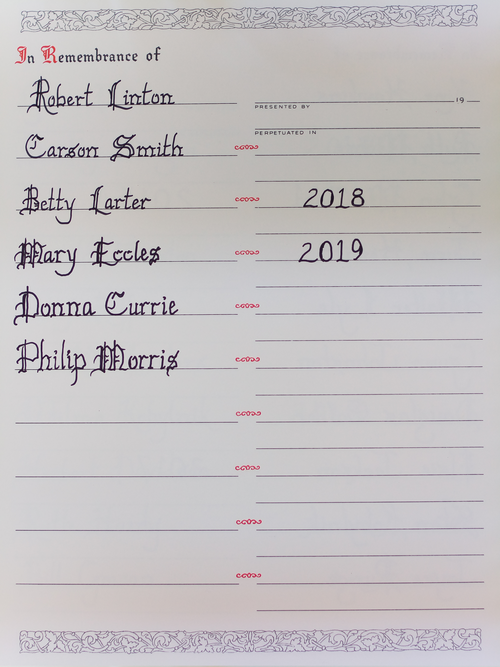 In Remembrance of
Robert Linton
19
PRESENTED BY
PERPETUATED IN
Carson Smith
Betty Larter 2018
Mary Eccles 2019
Donna Currie
Philip Morris